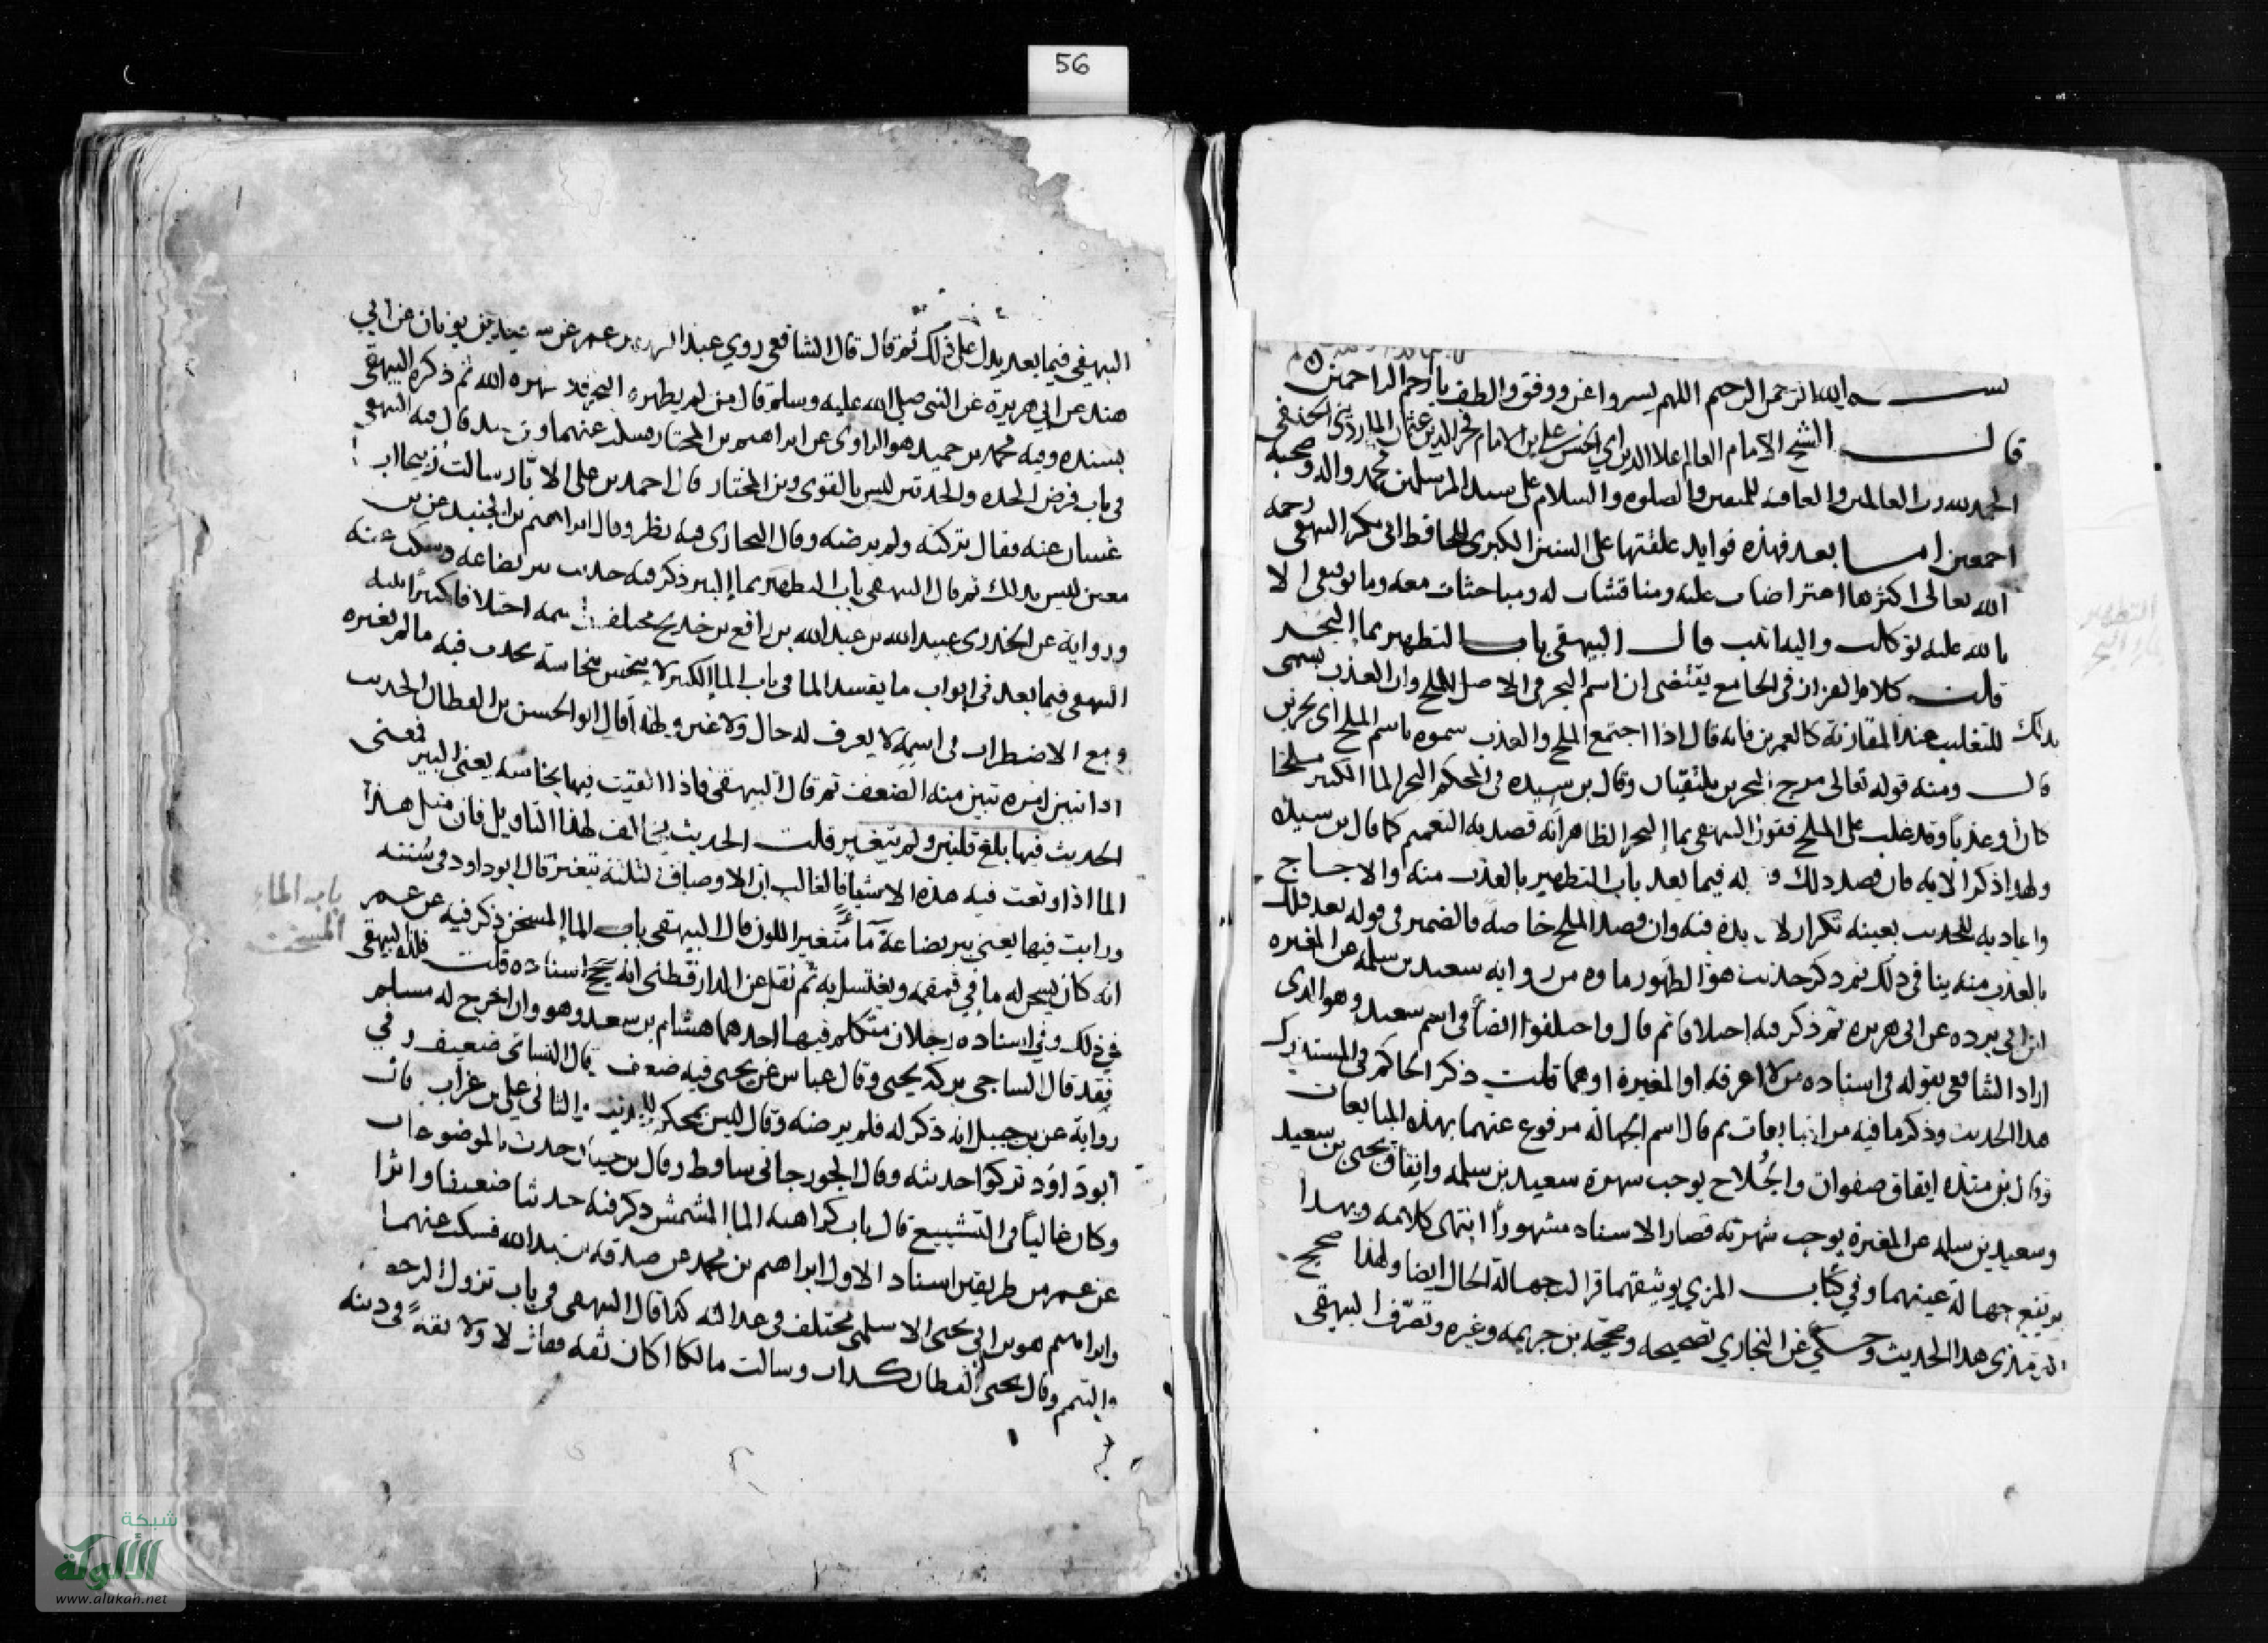 56
بســـم الله الرحمن الرحيم اللهم يسر واعن ووفق والطف يا ارحم الراحمين
قال الشيخ الامام العالم علا الدين ابي الحسن علي بن الامام فخر الدين عثمان المارديني الحنفي
الحمد لله رب العالمين والعاقبة للمتقين والصلوه والسلام على سيد المرسلين محمد واله وصحبه
اجمعين اما بعد فهذه فوايد علقتها على السنن الكبرى للحافظ ابي بكر البيهقي رحمه
الله تعالى اكثرها اعتراضات عليه ومناقشات له ومباحثات معه وما توفيقي الا
بالله عليه توكلت واليه انيب قال البيهقي باب التطهير بما البحر
قلت كلام القزاز في الجامع يقتضى ان اسم البحر في الاصل للملح وان العذب يسمى
بذلك للتغليب عند المقارنة كالعمرين فانه قال اذا اجتمع الملح والعذب سموه باسم الملح اى بحرين
قال ومنه قوله تعالى مرج البحرين يلتقيان وقال بن سيده في المحكم البحر الما الكثير ملحا
كان او عذبا وقد غلب على الملح فقول البيهقي بما البحر الظاهر انه قصد به التعميم كما قال بن سيده
ولهذا ذكر الايه فان قصد ذلك فقوله فيما بعد باب التطهير بالعذب منه والاجاج
واعاديه للحديث بعينه تكرار لا فايده فيه وان قصد الملح خاصه فالضمير في قوله بعد ذلك
بالعذب منه ينافي ذلك ثم ذكر حديث هو الطهور ماوه من روايه سعيد بن سلمه عن المغيره
ابن ابي برده عن ابي هريره ثم ذكر فيه اختلافا ثم قال واختلفوا ايضا في اسم سعيد وهو الذى
اراد الشافعي بقوله في اسناده من لا اعرفه او المغيرة او هما قلت ذكر الحاكم في المستدرك
هذا الحديث وذكر ما فيه من المتابعات ثم قال اسم الجهالة مرفوع عنهما بهذه المتابعات
وقال بن منده اتفاق صفوان والجلاح يوجب شهرة سعيد بن سلمه واتفاق يحيى بن سعيد
وسعيد بن سلمه عن المغيرة يوجب شهرته فصار الاسناد مشهورا انتهى كلامه وبهذا
يرتفع جهالة عينهما وفي كتاب المزي توثيقهما فزالت جهالة الحال ايضا ولهذا صحح
الترمذى هذا الحديث وحكي عن البخاري تصحيحه وصححه بن خزيمه وغيره وتصرف البيهقى
التطهير
بماء البحر
البيهقي فيما بعد يدل على ذلك ثم قال قال الشافعي روي عبد العزيز بن عمر عن سعيد بن ثوبان عن ابي
هند عن ابي هريرة عن النبي صلى الله عليه وسلم قال من لم يطهره البحر فلا طهره الله ثم ذكره البيهقى
بسنده وفيه محمد بن حميد هو الراوى عن ابراهيم بن المختار فسكت عنهما وبن حميد قال فيه البيهقي
في باب فرض الجده والجدتين ليس بالقوى وبن المختار قال احمد بن على الابار سالت زنيجا ابا
غسان عنه فقال تركته ولم يرضه وقال البخارى فيه نظر وقال ابراهيم بن الجنيد عن بن
معين ليس بذلك ثم قال البيهقي باب التطهير بما البير ذكر فيه حديث بير بضاعه وسكت عنه
ورواية عن الخدرى عبيد الله بن عبد الله بن رافع بن خديج مختلف في اسمه اختلافا كثيرا بينه
البيهقي فيما بعد في ابواب ما يفسد الما في باب الما الكثير لا ينجس بنجاسة تحدث فيه ما لم تغيره
ومع الاضطراب في اسمه لا يعرف له حال ولا عين ولهذا قال ابو الحسن بن القطان الحديث
اذا تبين امره تبين منه الضعف ثم قال البيهقي فاذا القيت فيها نجاسه يعنى البير فمعنى
الحديث فيما بلغ قلتين ولم يتغير قلت الحديث يخالف لهذا التاويل فان مثل هذا
الما اذا وقعت فيه هذه الاشيا فالغالب ان الاوصاف الثلثة تتغير قال ابو داود في سننه
ورايت فيها يعنى بير بضاعة ما متغير اللون قال البيهقي باب الما المسخن ذكر فيه عن عمر
انه كان يسخن له ما في قمقمه ويغتسل به ثم نقل عن الدارقطني انه صحح اسناده قلت قلد البيهقى
في ذلك وفي اسناده رجلان متكلم فيهما احدهما هشام بن سعد وهو وان اخرج له مسلم
فقد قال الساجي تركه يحيى وقال عباس عن يحيى فيه ضعف وقال النسائى ضعيف وفي
رواية عن بن حنبل انه ذكر له فلم يرضه وقال ليس بمحكم للحديث والثاني علي بن غراب قال
ابو داود تركوا حديثه وقال الجوزجاني ساقط وقال بن حبان حدث بالموضوعات
وكان غاليا في التشييع قال باب كراهية الما المشمش ذكر فيه حديثا ضعيفا واثرا
عن عمر من طريقين اسناد الاول ابراهيم بن محمد عن صدقه بن عبد الله فسكت عنهما
وابراهيم هو بن ابي يحيى الاسلمي مختلف في عدالته كذا قال البيهقي في باب نزول الرخصه
في التيمم وقال يحيى القطان كذاب وسالت مالكا اكان ثقه فقال لا ولا ثقة في دينه
باب الماء
المسخن
شبكة
الألوكة
www.alukah.net